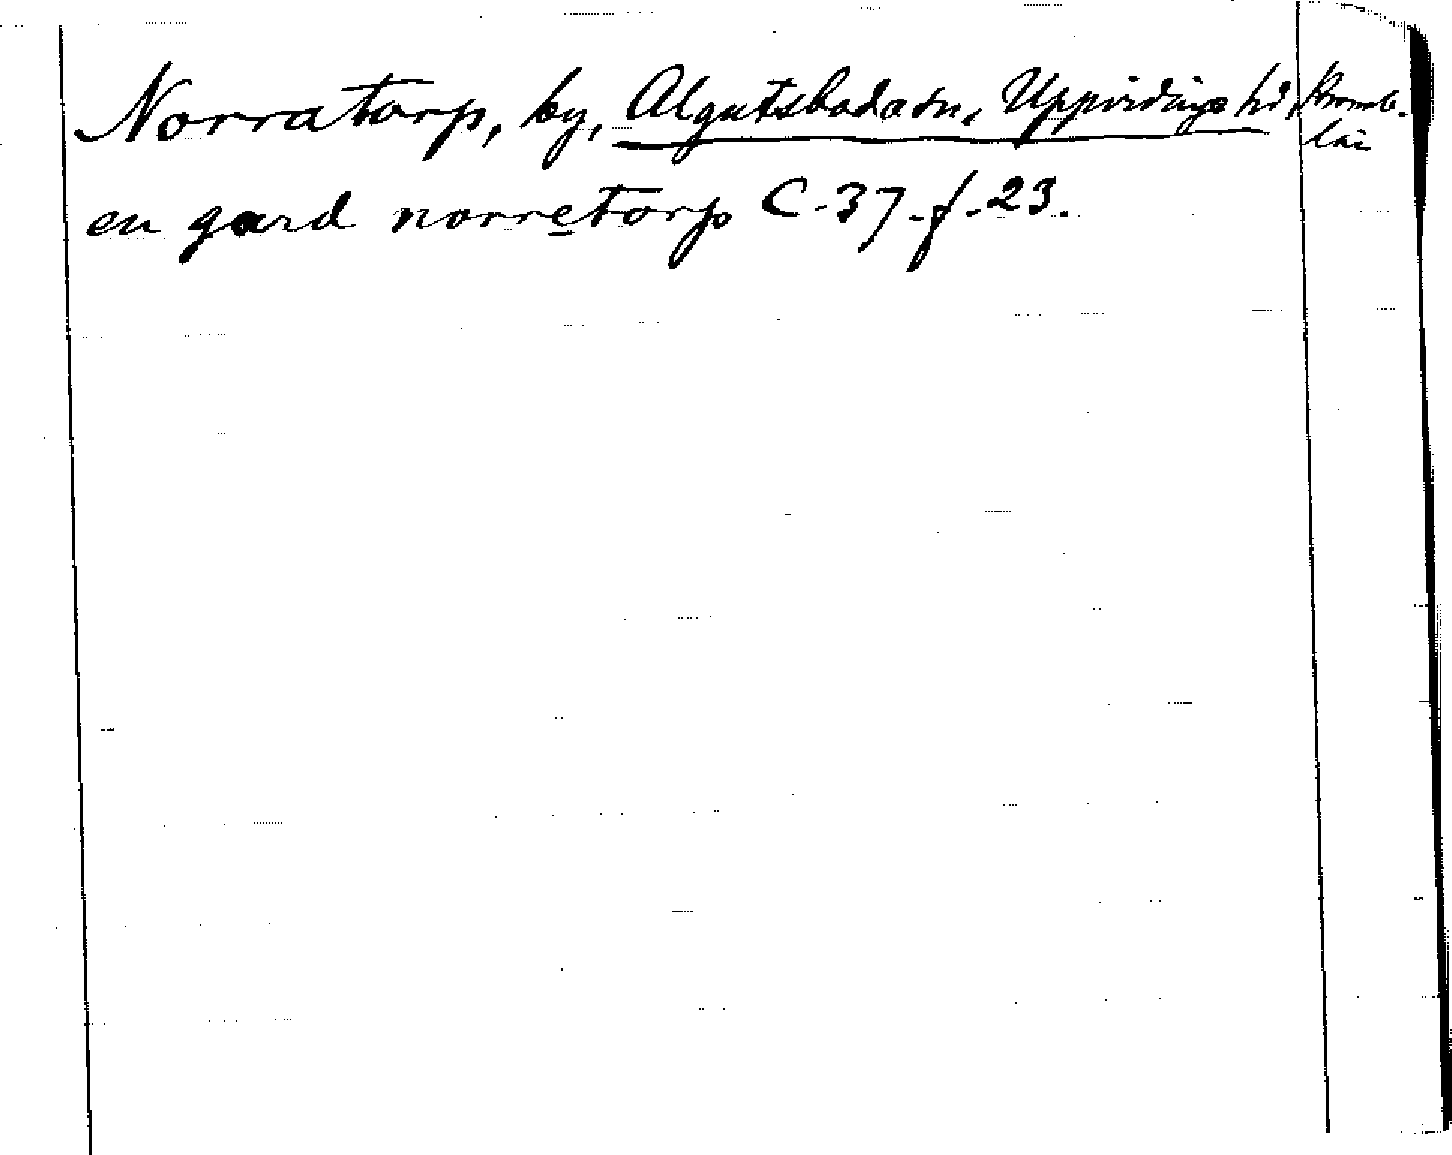 Norratorp, by, Algutsboda sn, Uppvidinge hd, Kronob.
län
en gard norretorp C-37-f-23.